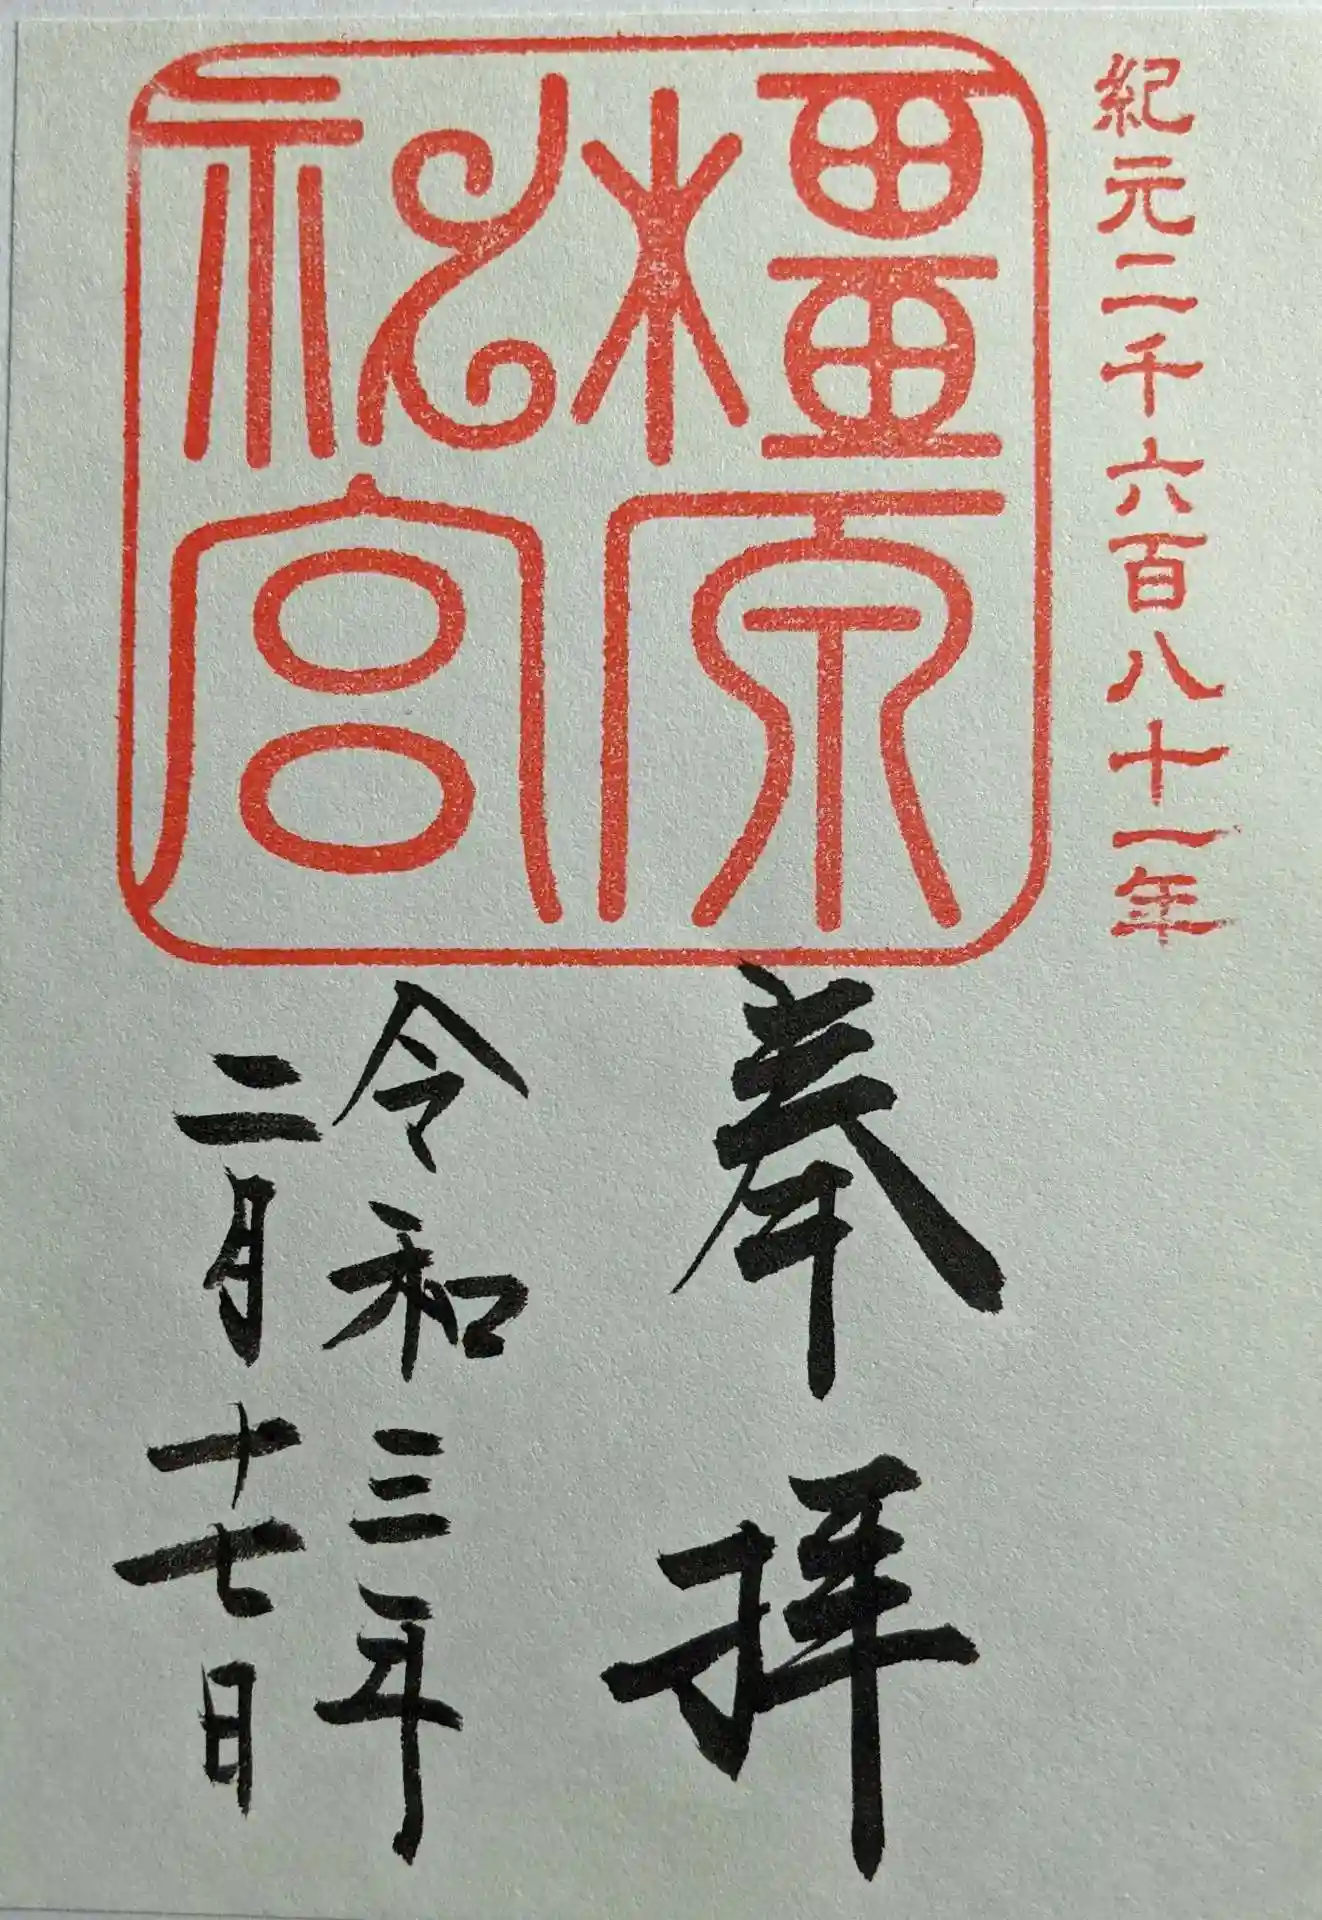 紀元二千六百八十一年
橿原
神宮
奉拝
令和三年
二月十七日